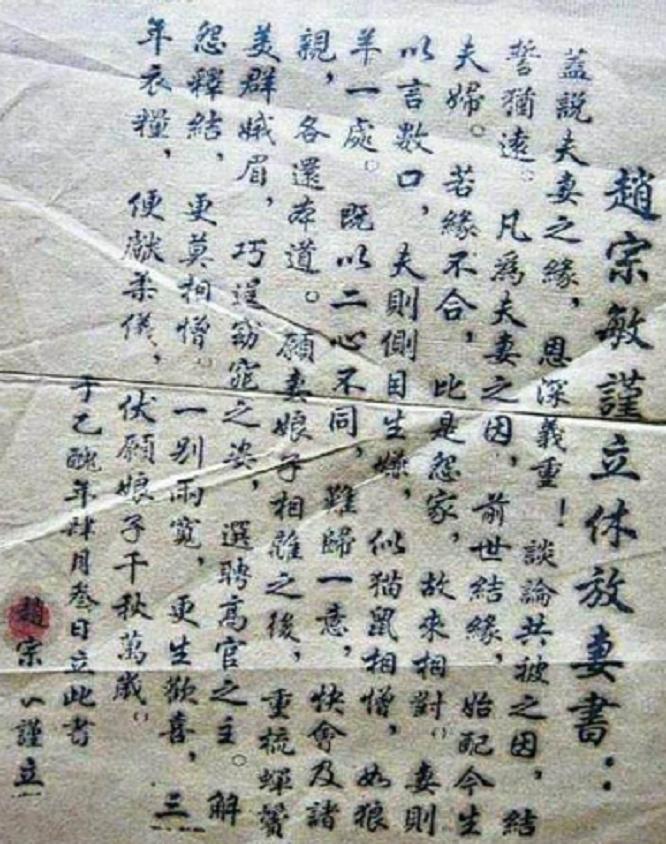 趙宗敏謹立休放妻書：
蓋說夫妻之緣，恩深義重！談論共被之因，結
誓猶遠。凡爲夫妻之因，前世結緣，始配今生
夫婦。若緣不合，比是怨家，故來相對。妻則
以言數口，夫則側目生嫌，似猫鼠相憎，如狼
羊一處。既以二心不同，難歸一意，快會及諸
親，各還本道。願妻娘子相離之後，重梳蟬鬢
美群娥眉，巧逞窈窕之姿，選聘高官之主。解
怨釋結，更莫相憎。一別兩寬，更生歡喜，三
年衣糧，便獻柔儀，伏願娘子千秋萬歲。
于乙醜年肆月叁日立此書
趙宗 謹立